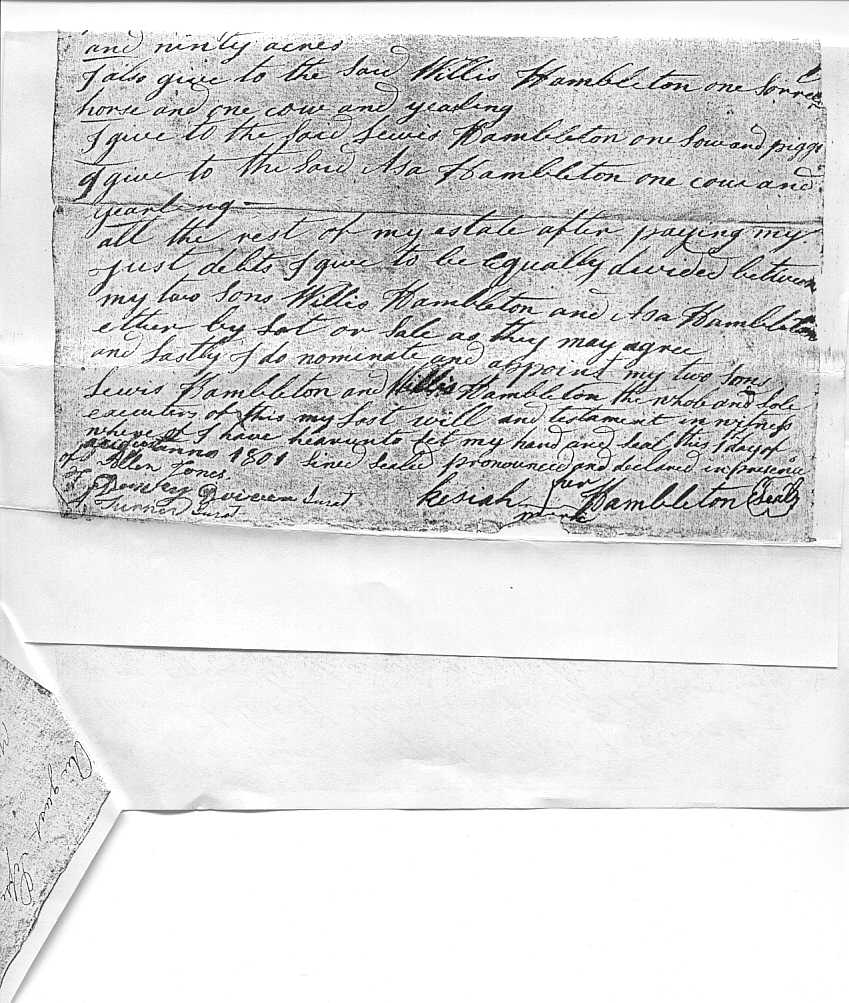 and ninty acres
I also give to the said Willis Hambleton one Sorrel
horse and one cow and yearling
I give to the said Lewis Hambleton one Sow and piggs
I give to the Said Asa Hambleton one cow and
yearling —
all the rest of my estate after paying my
just debts I give to be equally divided between
my two sons Willis Hambleton and Asa Hambleton
ether by Lot or Sale as they may agree
and Lastly I do nominate and appoint my two sons
Lewis Hambleton and Willis Hambleton the whole and Sole
executors of this my Last will and testament in witness
where of I have hearunto Set my hand and seal this 1 day of
anno 1801 Sined Sealed pronounced and declared in presence
of Allen Jones
her
Jurat
Kesiah Hambleton Seal
mark
Turner Jurat